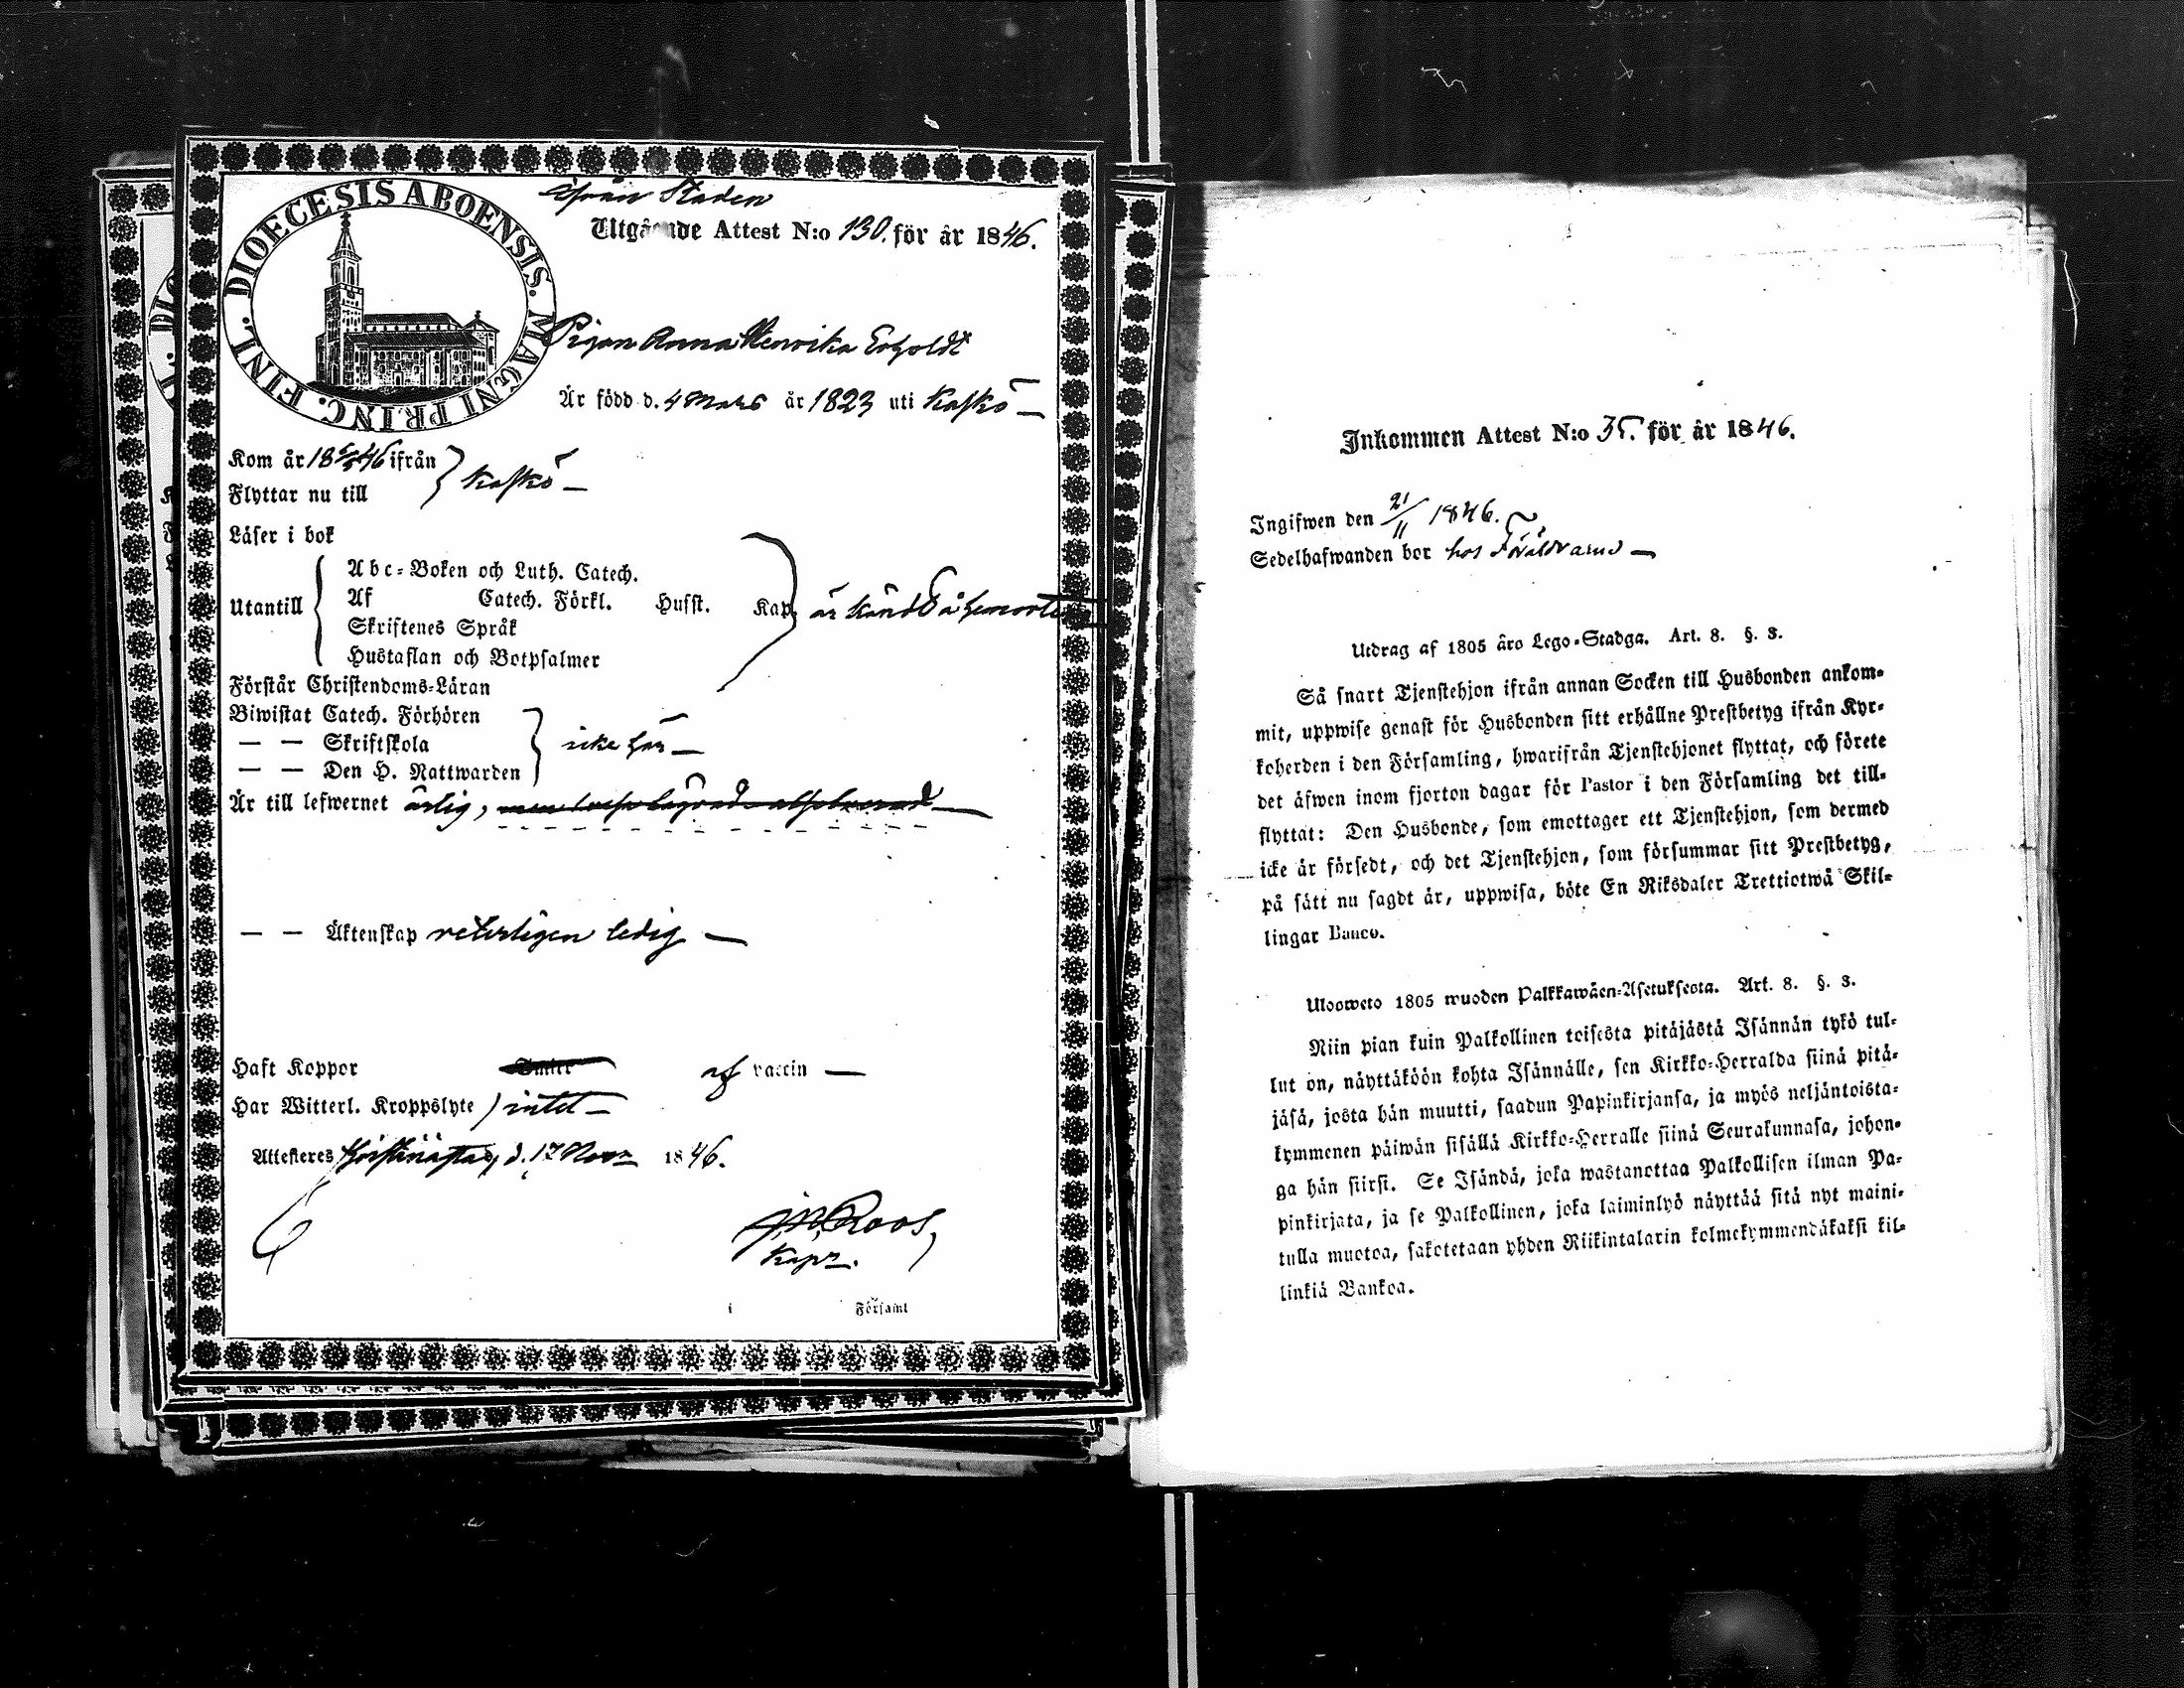 ifrån Staden
Utgående Attest N:o 130. för år 1846.
DIOECESIS ABOENSIS. MAGNI PRINC. FINL.
Pigan Anna Henrika
Är född d. 4 Mars år 1823 uti Kaskö
Kom år 18 46 ifrån
Flyttar nu till
Kaskö
Läser i bok
Abc-Boken och Luth. Catech.
Utantill Af Catech. Förkl. Husst. Kap. är känd å hemorten
Skriftenes Språk
Hustaflan och Botpsalmer
Förstår Christendoms-Läran
Biwistat Catech. Förhören
— — Skriftskola icke här
— — Den H. Nattwarden
Är till lefwernet ärlig,
— — Äktenskap veterligen ledig
Haft Koppor af vaccin
Har Witterl. Kroppslyte intet
Attesteres Christinästad, d. 17 Nov. 1846.
Roos,
Kapn.
i Församl
Inkommen Attest N:o 35. för år 1846.
Ingifwen den 21/11 1846.
Sedelhafwanden bor hos Föräldrarne
Utdrag af 1805 års Lego-Stadga. Art. 8. §. 3.
Så snart Tjenstehjon ifrån annan Socken till Husbonden ankom-
mit, uppwise genast för Husbonden sitt erhållne Prestbetyg ifrån Kyr-
koherden i den Församling, hwarifrån Tjenstehjonet flyttat, och förete
det äfwen inom fjorton dagar för Pastor i den Församling det till-
flyttat: Den Husbonde, som emottager ett Tjenstehjon, som dermed
icke är försedt, och det Tjenstehjon, som försummar sitt Prestbetyg,
på sätt nu sagdt är, uppwisa, böte En Riksdaler Trettiotwå Skil-
lingar Banco.
Ulosweto 1805 wuoden Palkkawäen-Asetuksesta. Art. 8. §. 3.
Niin pian kuin Palkollinen toisesta pitäjästä Isännän tykö tul-
lut on, näyttäköön kohta Isännälle, sen Kirkko-Herralda siinä pitä-
jäsä, josta hän muutti, saadun Papinkirjansa, ja myös neljäntoista-
kymmenen päiwän sisällä Kirkko-Herralle siinä Seurakunnasa, johon-
ga hän siirsi. Se Isändä, joka wastanottaa Palkollisen ilman Pa-
pinkirjata, ja se Palkollinen, joka laiminlyö näyttää sitä nyt maini-
tulla muotoa, sakotetaan yhden Riikintalarin kolmekymmendäkaksi kil-
linkiä Bankoa.